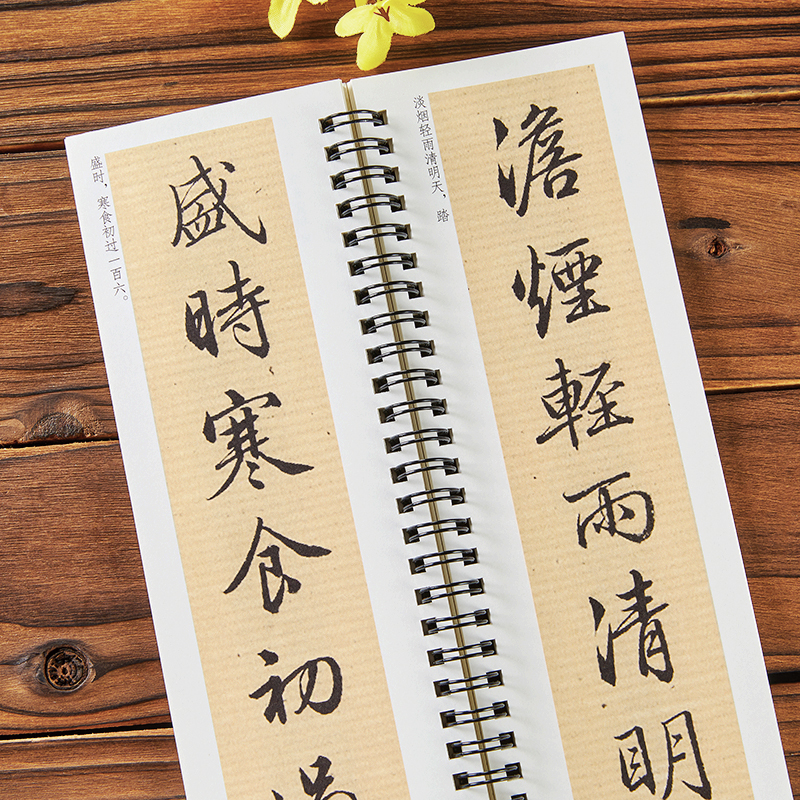 盛時寒食初過
盛时，寒食初过一百六。
澹煙輕雨清明
淡烟轻雨清明天，踏